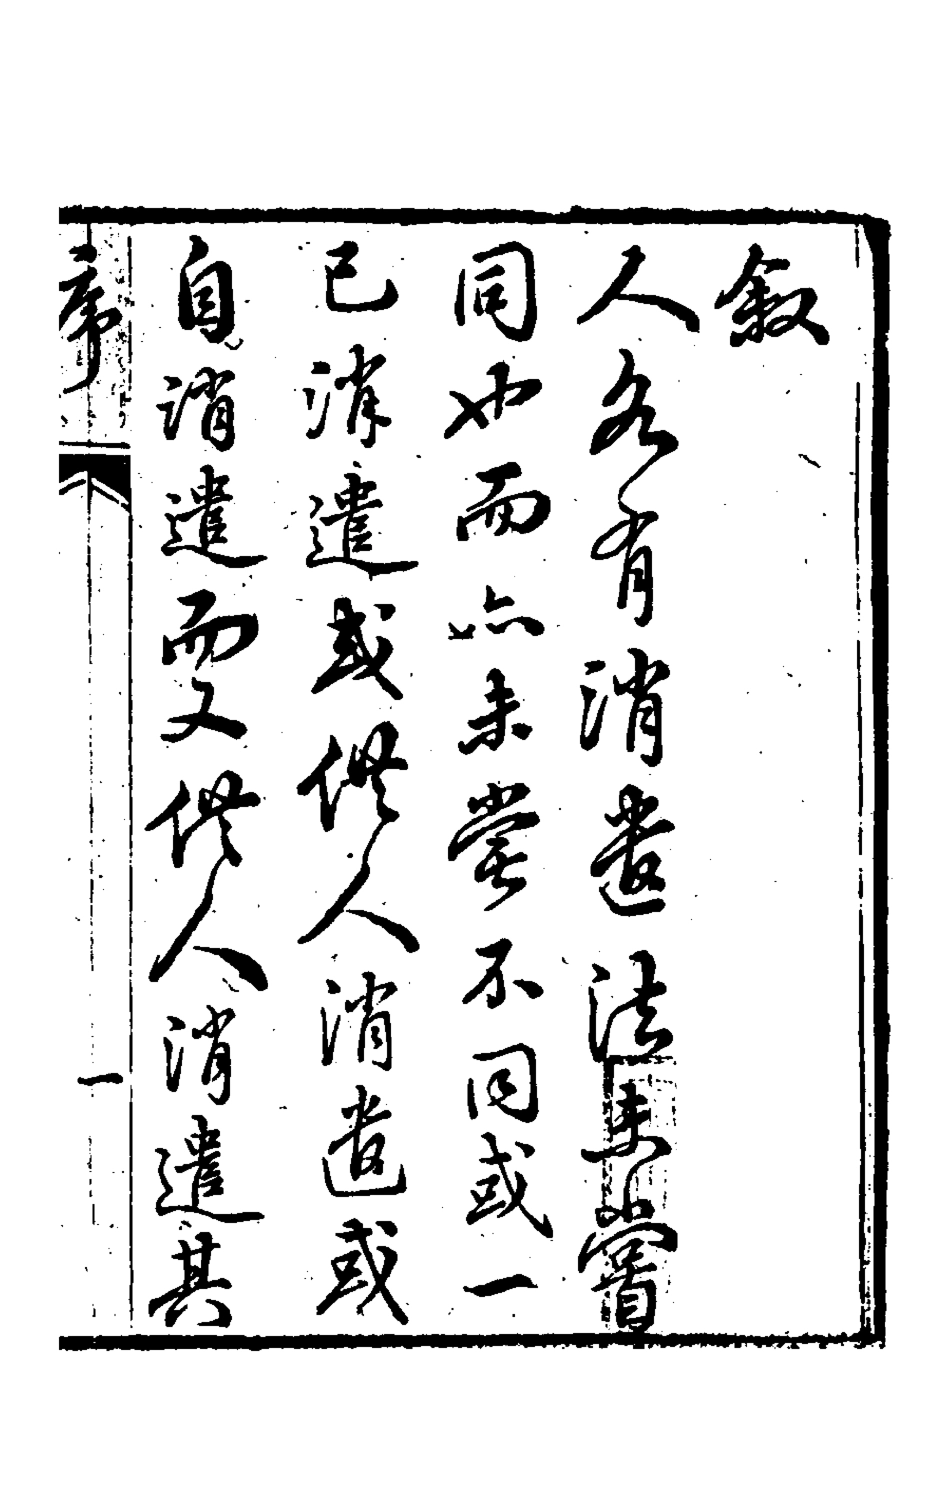 敘
人各有消遣法未嘗
同也而亦未嘗不同或一
已消遣或供人消遣或
自消遣而又供人消遣其
序
一